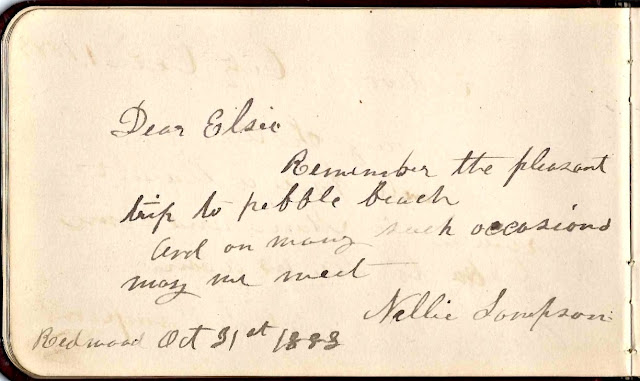 Dear Elsie
Remember the pleasant
trip to pebble beach
and on many such occasions
may we meet
Nellie
Redwood Oct 31st 1883